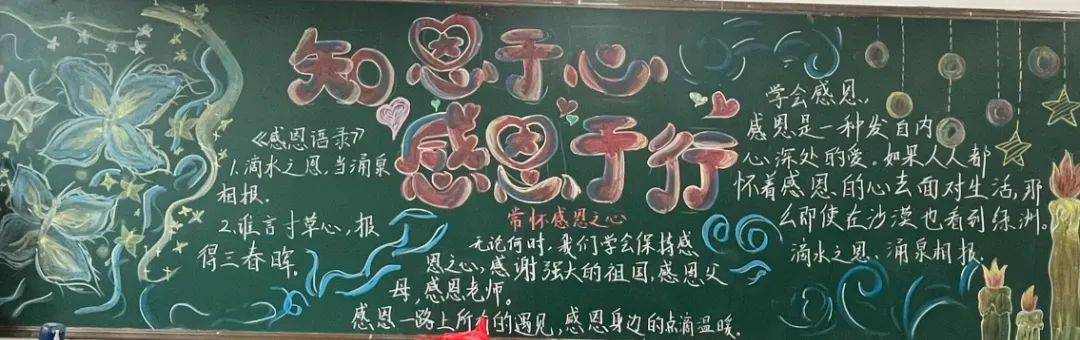 知恩于心
感恩于行
《感恩语录》
1.滴水之恩,当涌泉
相报.
2.谁言寸草心,报
得三春晖.
常怀感恩之心
无论何时,我们学会保持感
恩之心,感谢强大的祖国,感恩父
母,感恩老师。
感恩一路上所有的遇见,感恩身边的点滴温暖.
学会感恩、
感恩是一种发自内
心深处的爱。如果人人都
怀着感恩的心去面对生活,那
么即使在沙漠也看到绿洲。
滴水之恩、涌泉相报.